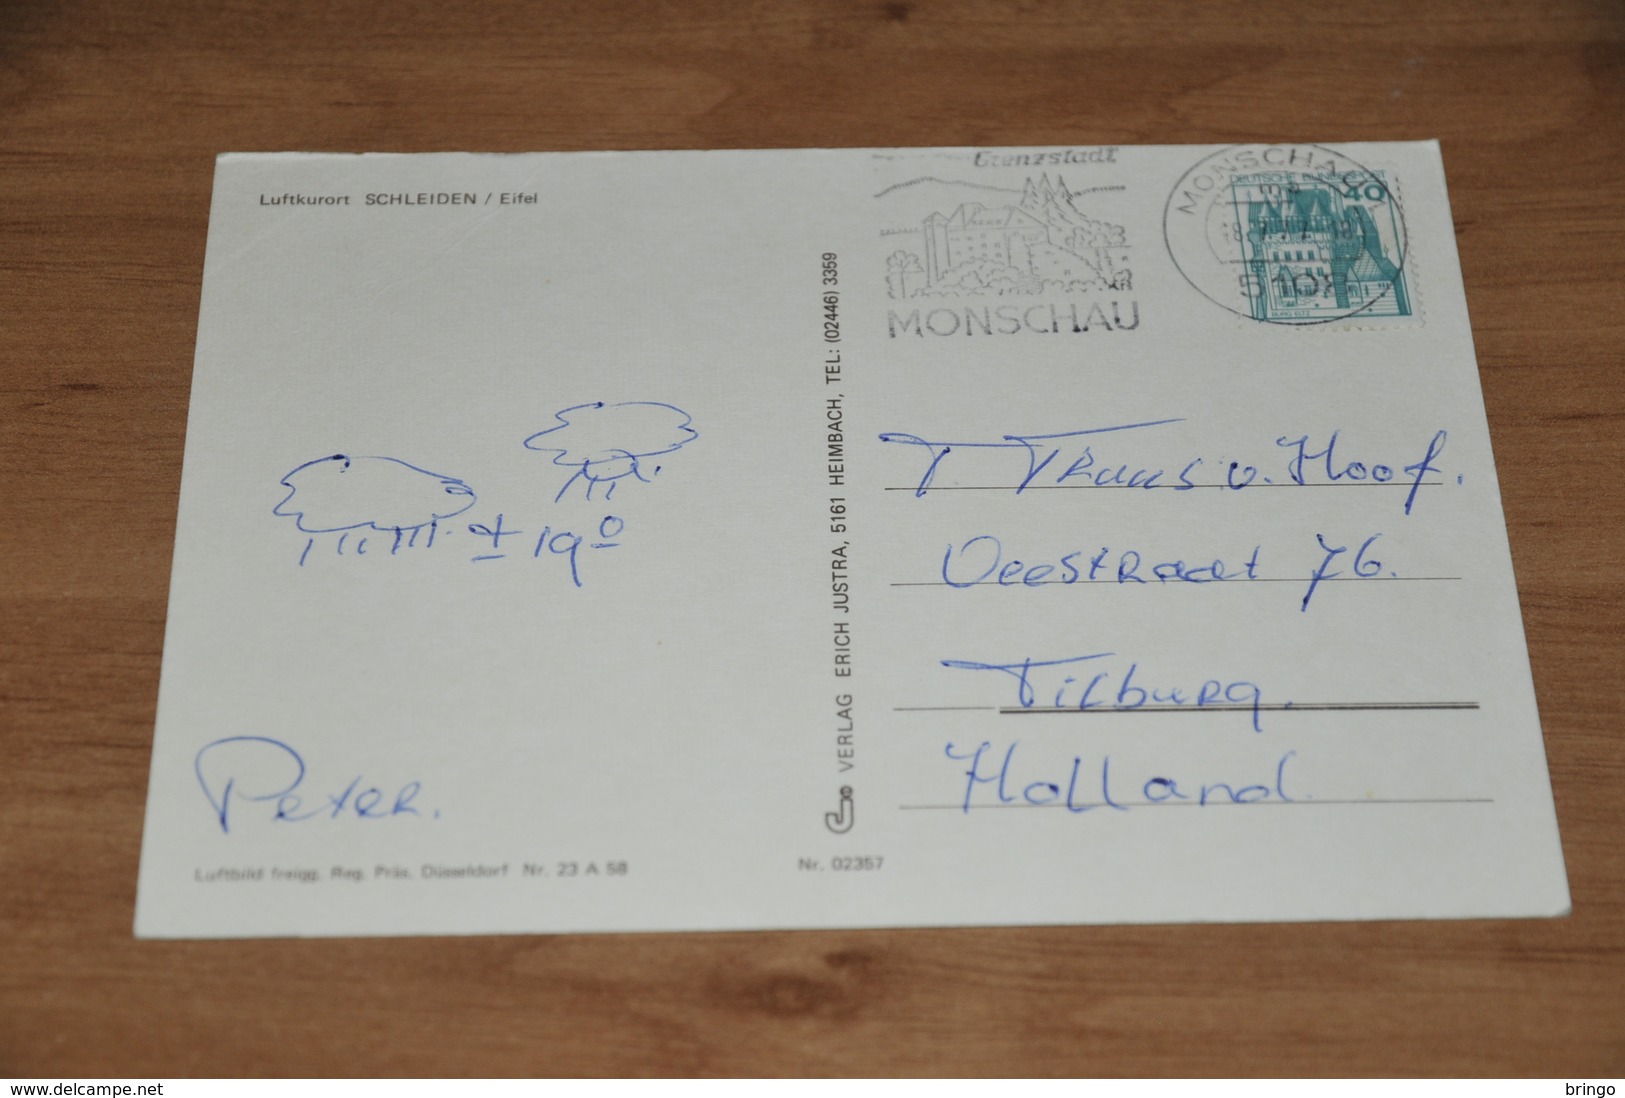 Luftkurort SCHLEIDEN / Eifel
± 19°
Peter.
Luftbild freigg. Reg. Präs. Düsseldorf Nr. 23 A 58
VERLAG ERICH JUSTRA, 5161 HEIMBACH, TEL: (02446) 3359
Nr. 02357
Grenzstadt
MONSCHAU
MONSCHAU
18.7.77. 18
5108
DEUTSCHE BUNDESPOST
40
BURG ELTZ
v. Hoof.
76.
Tilburg.
Holland
delcampe.net
bringo